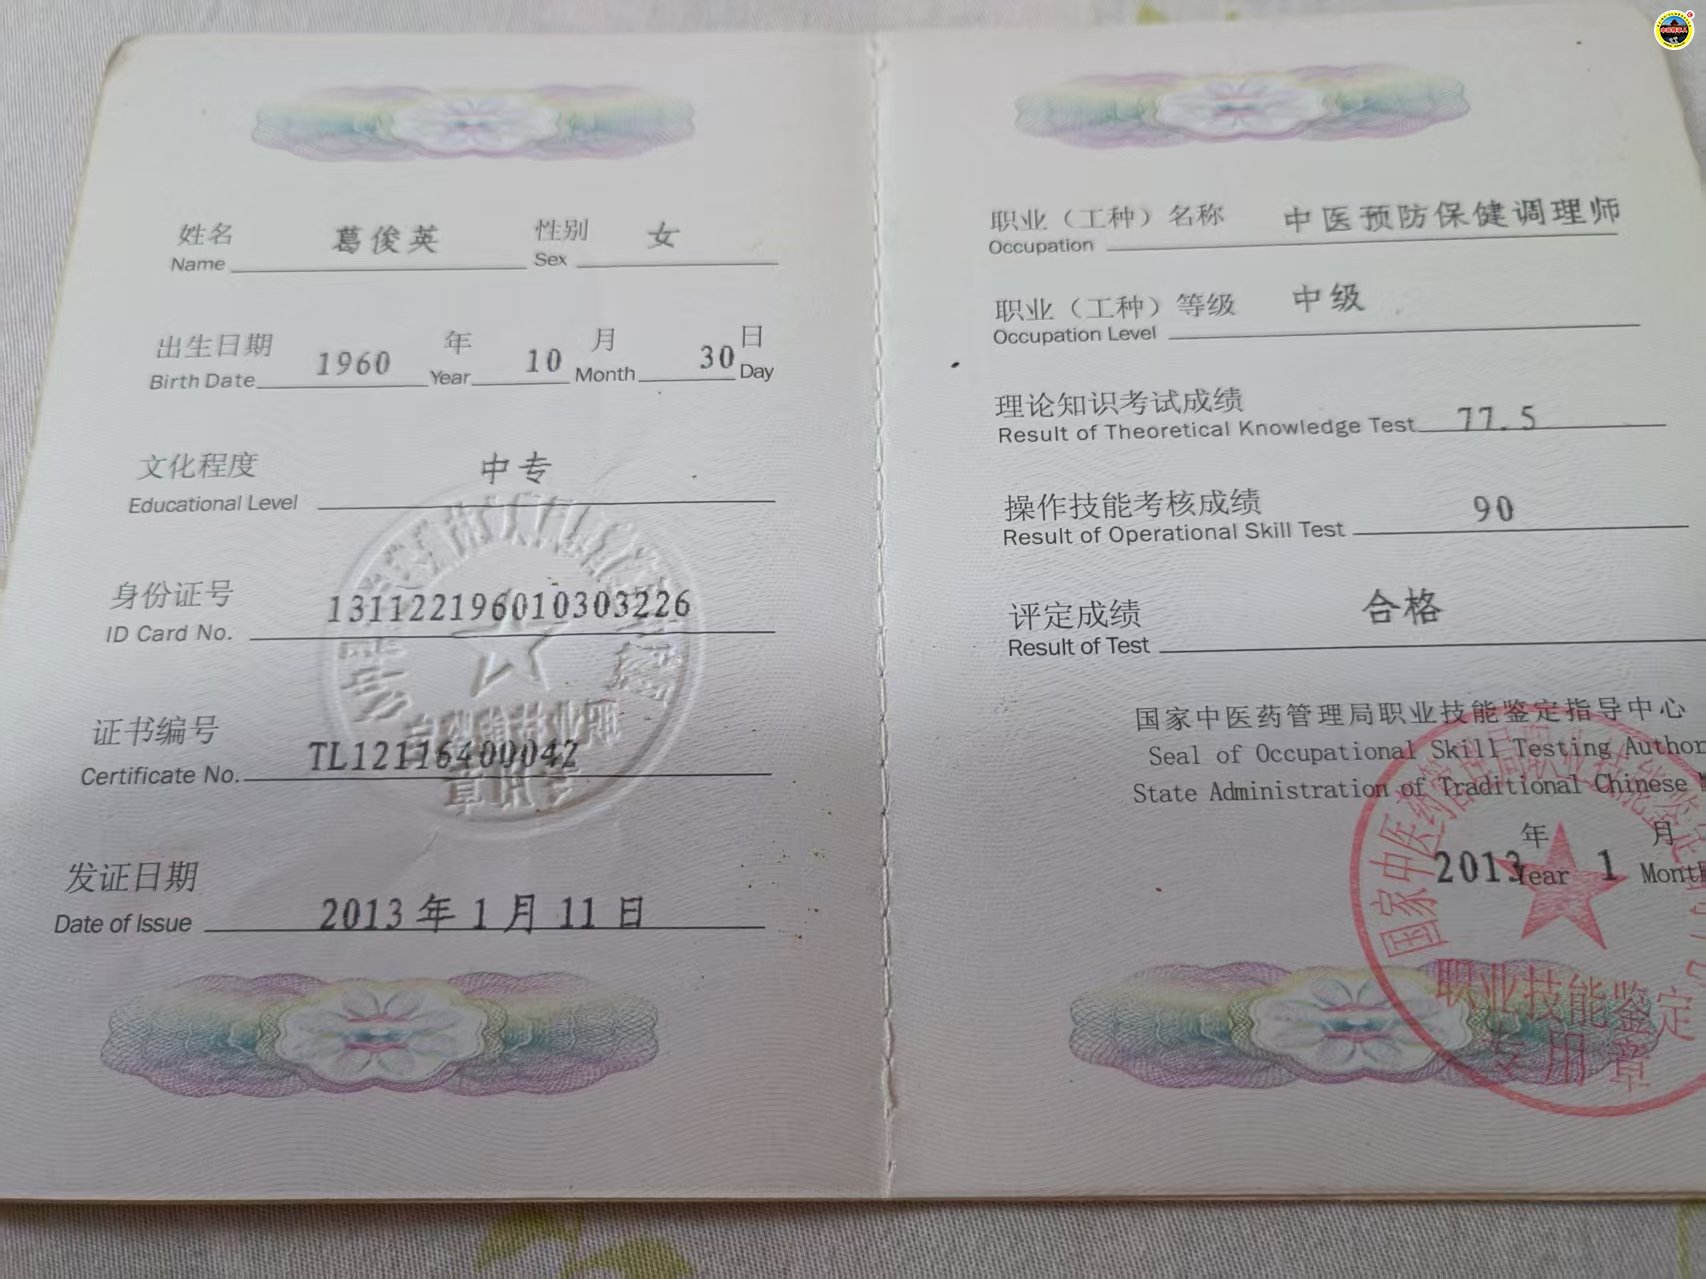 姓名 葛俊英 性别 女
Name Sex
出生日期 1960 年 10 月 30 日
Birth Date Year Month Day
文化程度 中专
Educational Level
身份证号 131122196010303226
ID Card No.
证书编号 TL12116400042
Certificate No.
发证日期 2013年1月11日
Date of Issue
职业技能鉴定
职业（工种）名称 中医预防保健调理师
Occupation
职业（工种）等级 中级
Occupation Level
理论知识考试成绩 77.5
Result of Theoretical Knowledge Test
操作技能考核成绩 90
Result of Operational Skill Test
评定成绩 合格
Result of Test
国家中医药管理局职业技能鉴定指导中心
Seal of Occupational Skill Testing Author
State Administration of Traditional Chinese
年 月
2013 Year 1 Month
国家中医药管理局职业技能鉴定
职业技能鉴定
专用章